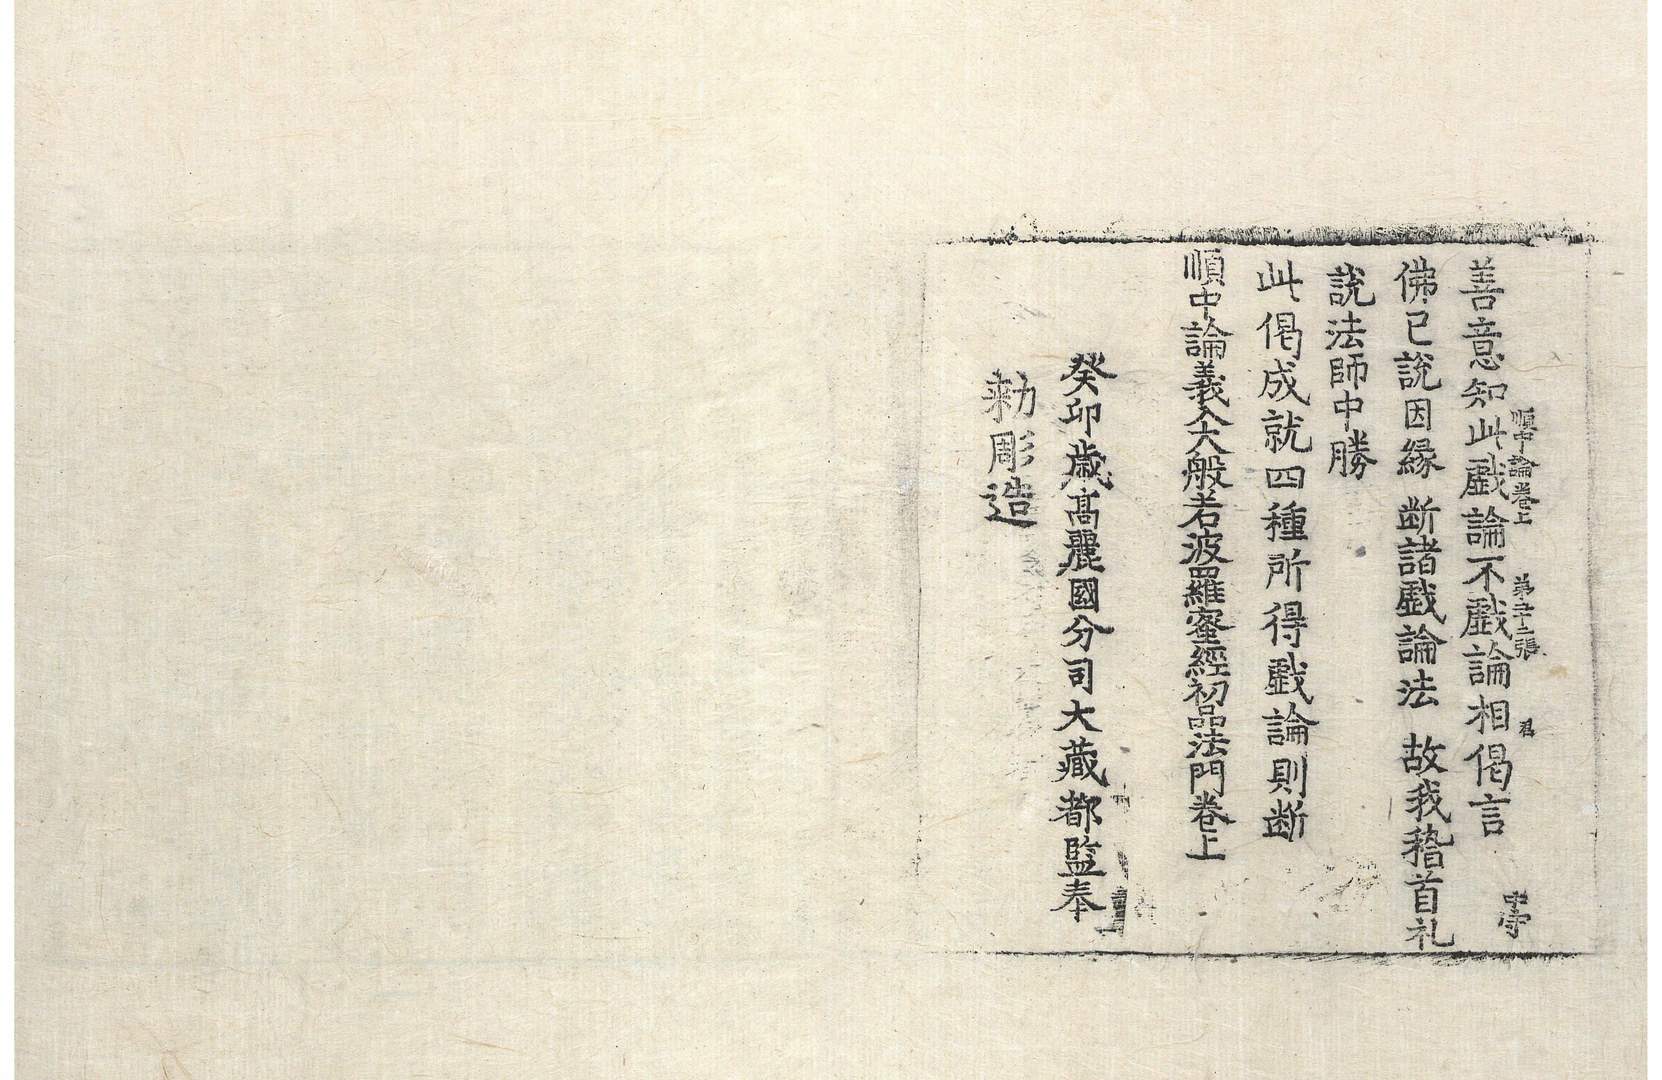 順中論卷上　第三十二張　君
善意知此戱論不戱論相偈言
佛已說因緣　断諸戱論法　故我稽首礼
說法師中勝
此偈成就四種所得戱論則断
順中論義入大般若波羅蜜經初品法門卷上
癸卯歲高麗國分司大藏都監奉
勑彫造